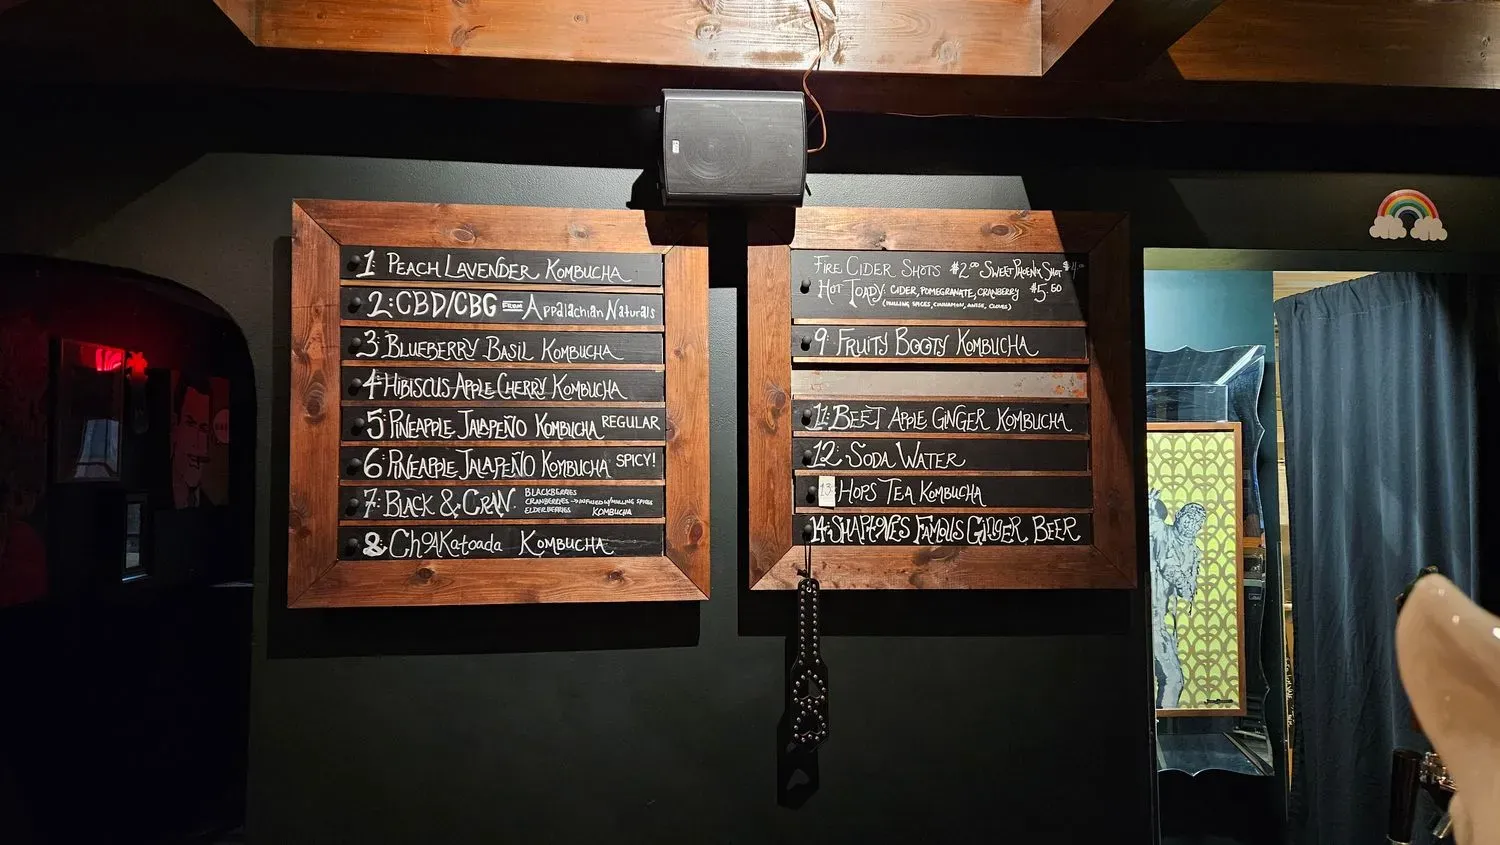 1 PEACH LAVENDER KOMBUCHA
2: CBD/CBG FROM Appalachian Naturals
3: BLUEBERRY BASIL KOMBUCHA
4: HIBISCUS-APPLE CHERRY KOMBUCHA
5: PINEAPPLE JALAPEÑO KOMBUCHA REGULAR
6: PINEAPPLE JALAPEÑO KOMBUCHA SPICY!
7: BLACK & CRAN
BLACKBERRIES
CRANBERRIES → INFUSED W/ MULLING SPICES
ELDERBERRIES KOMBUCHA
8: ChOAKatoada KOMBUCHA
FIRE CIDER SHOTS $2.00 SWEET PHOENIX SHOT
HOT TOADY: CIDER, POMEGRANATE, CRANBERRY $5.50
(MULLING SPICES, CINNAMON, ANISE, CLOVES)
9: FRUITY BOOTY KOMBUCHA
11: BEET APPLE GINGER KOMBUCHA
12: SODA WATER
13: HOPS TEA KOMBUCHA
14: SHARTONES FAMOUS GINGER BEER